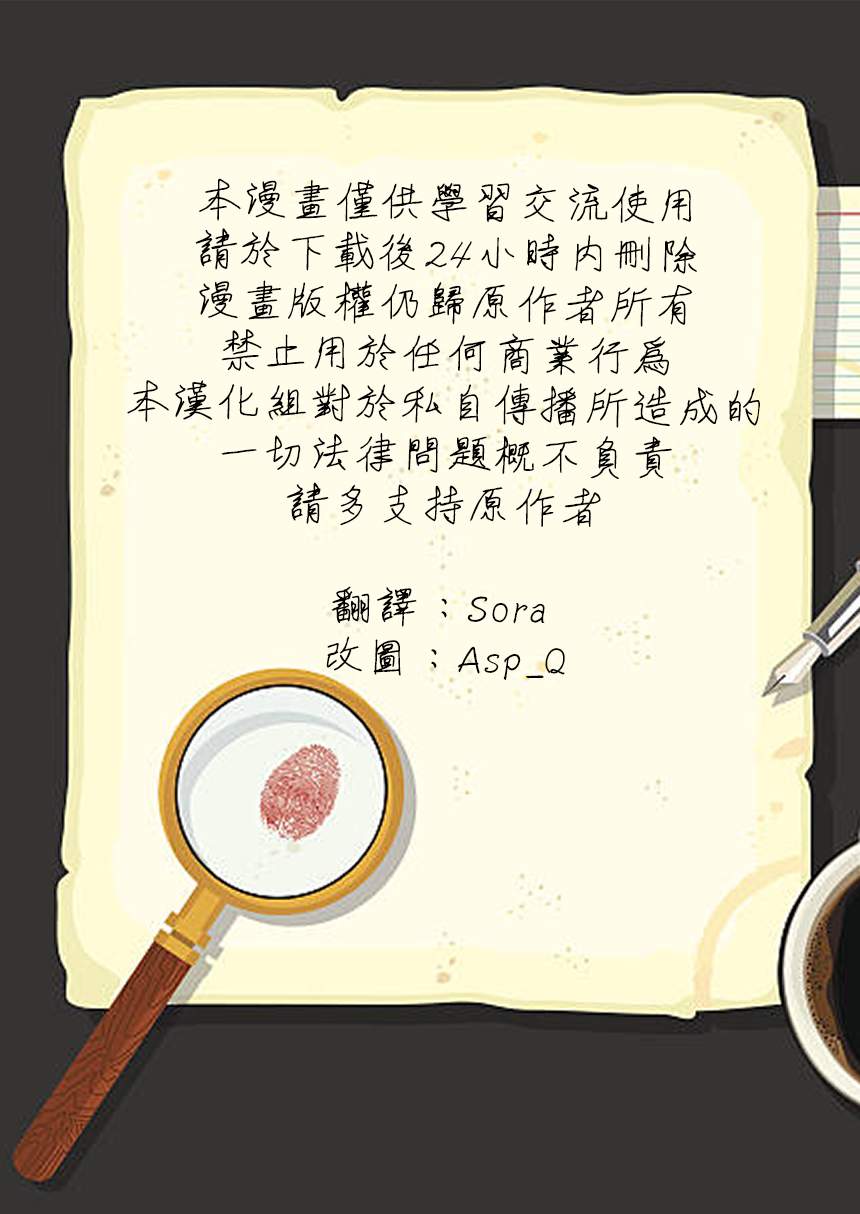 本漫畫僅供學習交流使用
請於下載後24小時內刪除
漫畫版權仍歸原作者所有
禁止用於任何商業行爲
本漢化組對於私自傳播所造成的
一切法律問題概不負責
請多支持原作者
翻譯：Sora
改圖：Asp_Q